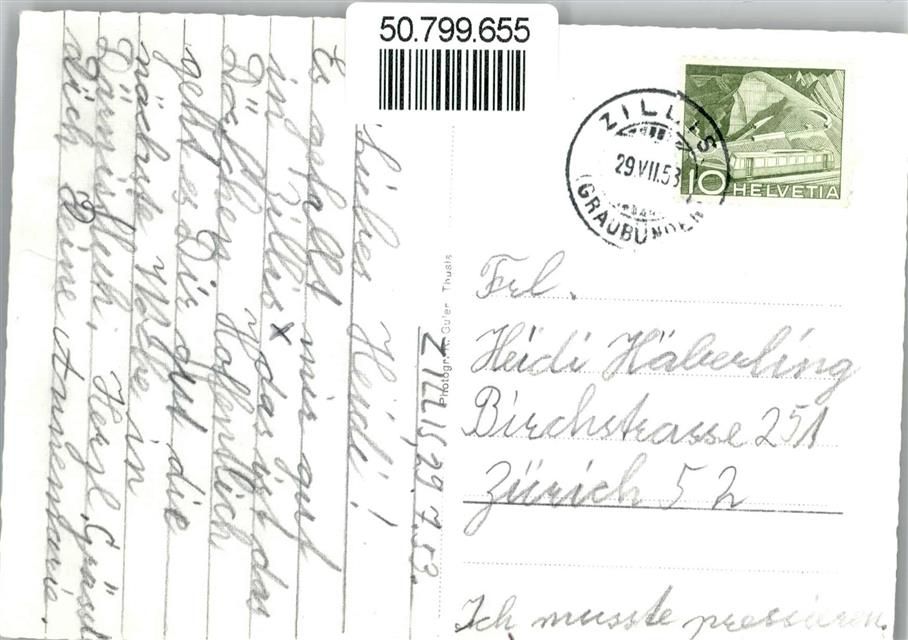 50.799.655
ZILLIS
29.VII.53
(GRAUBÜNDEN)
10 HELVETIA
Frl.
Heidi Häberling
Birchstrasse 251
Zürich 52
Ich musste pressieren.
Photogr. A. Guler Thusis
ZILLIS, 29.7.53.
Liebes Heidi!
Es gefallt mir gut
in Zillis x das ist das
Dörfchen Hoffentlich
geht es Dir gut die
nächste Woche in
Därnisfluh, Herzl. Grüsst
dich Deine Annemarie.